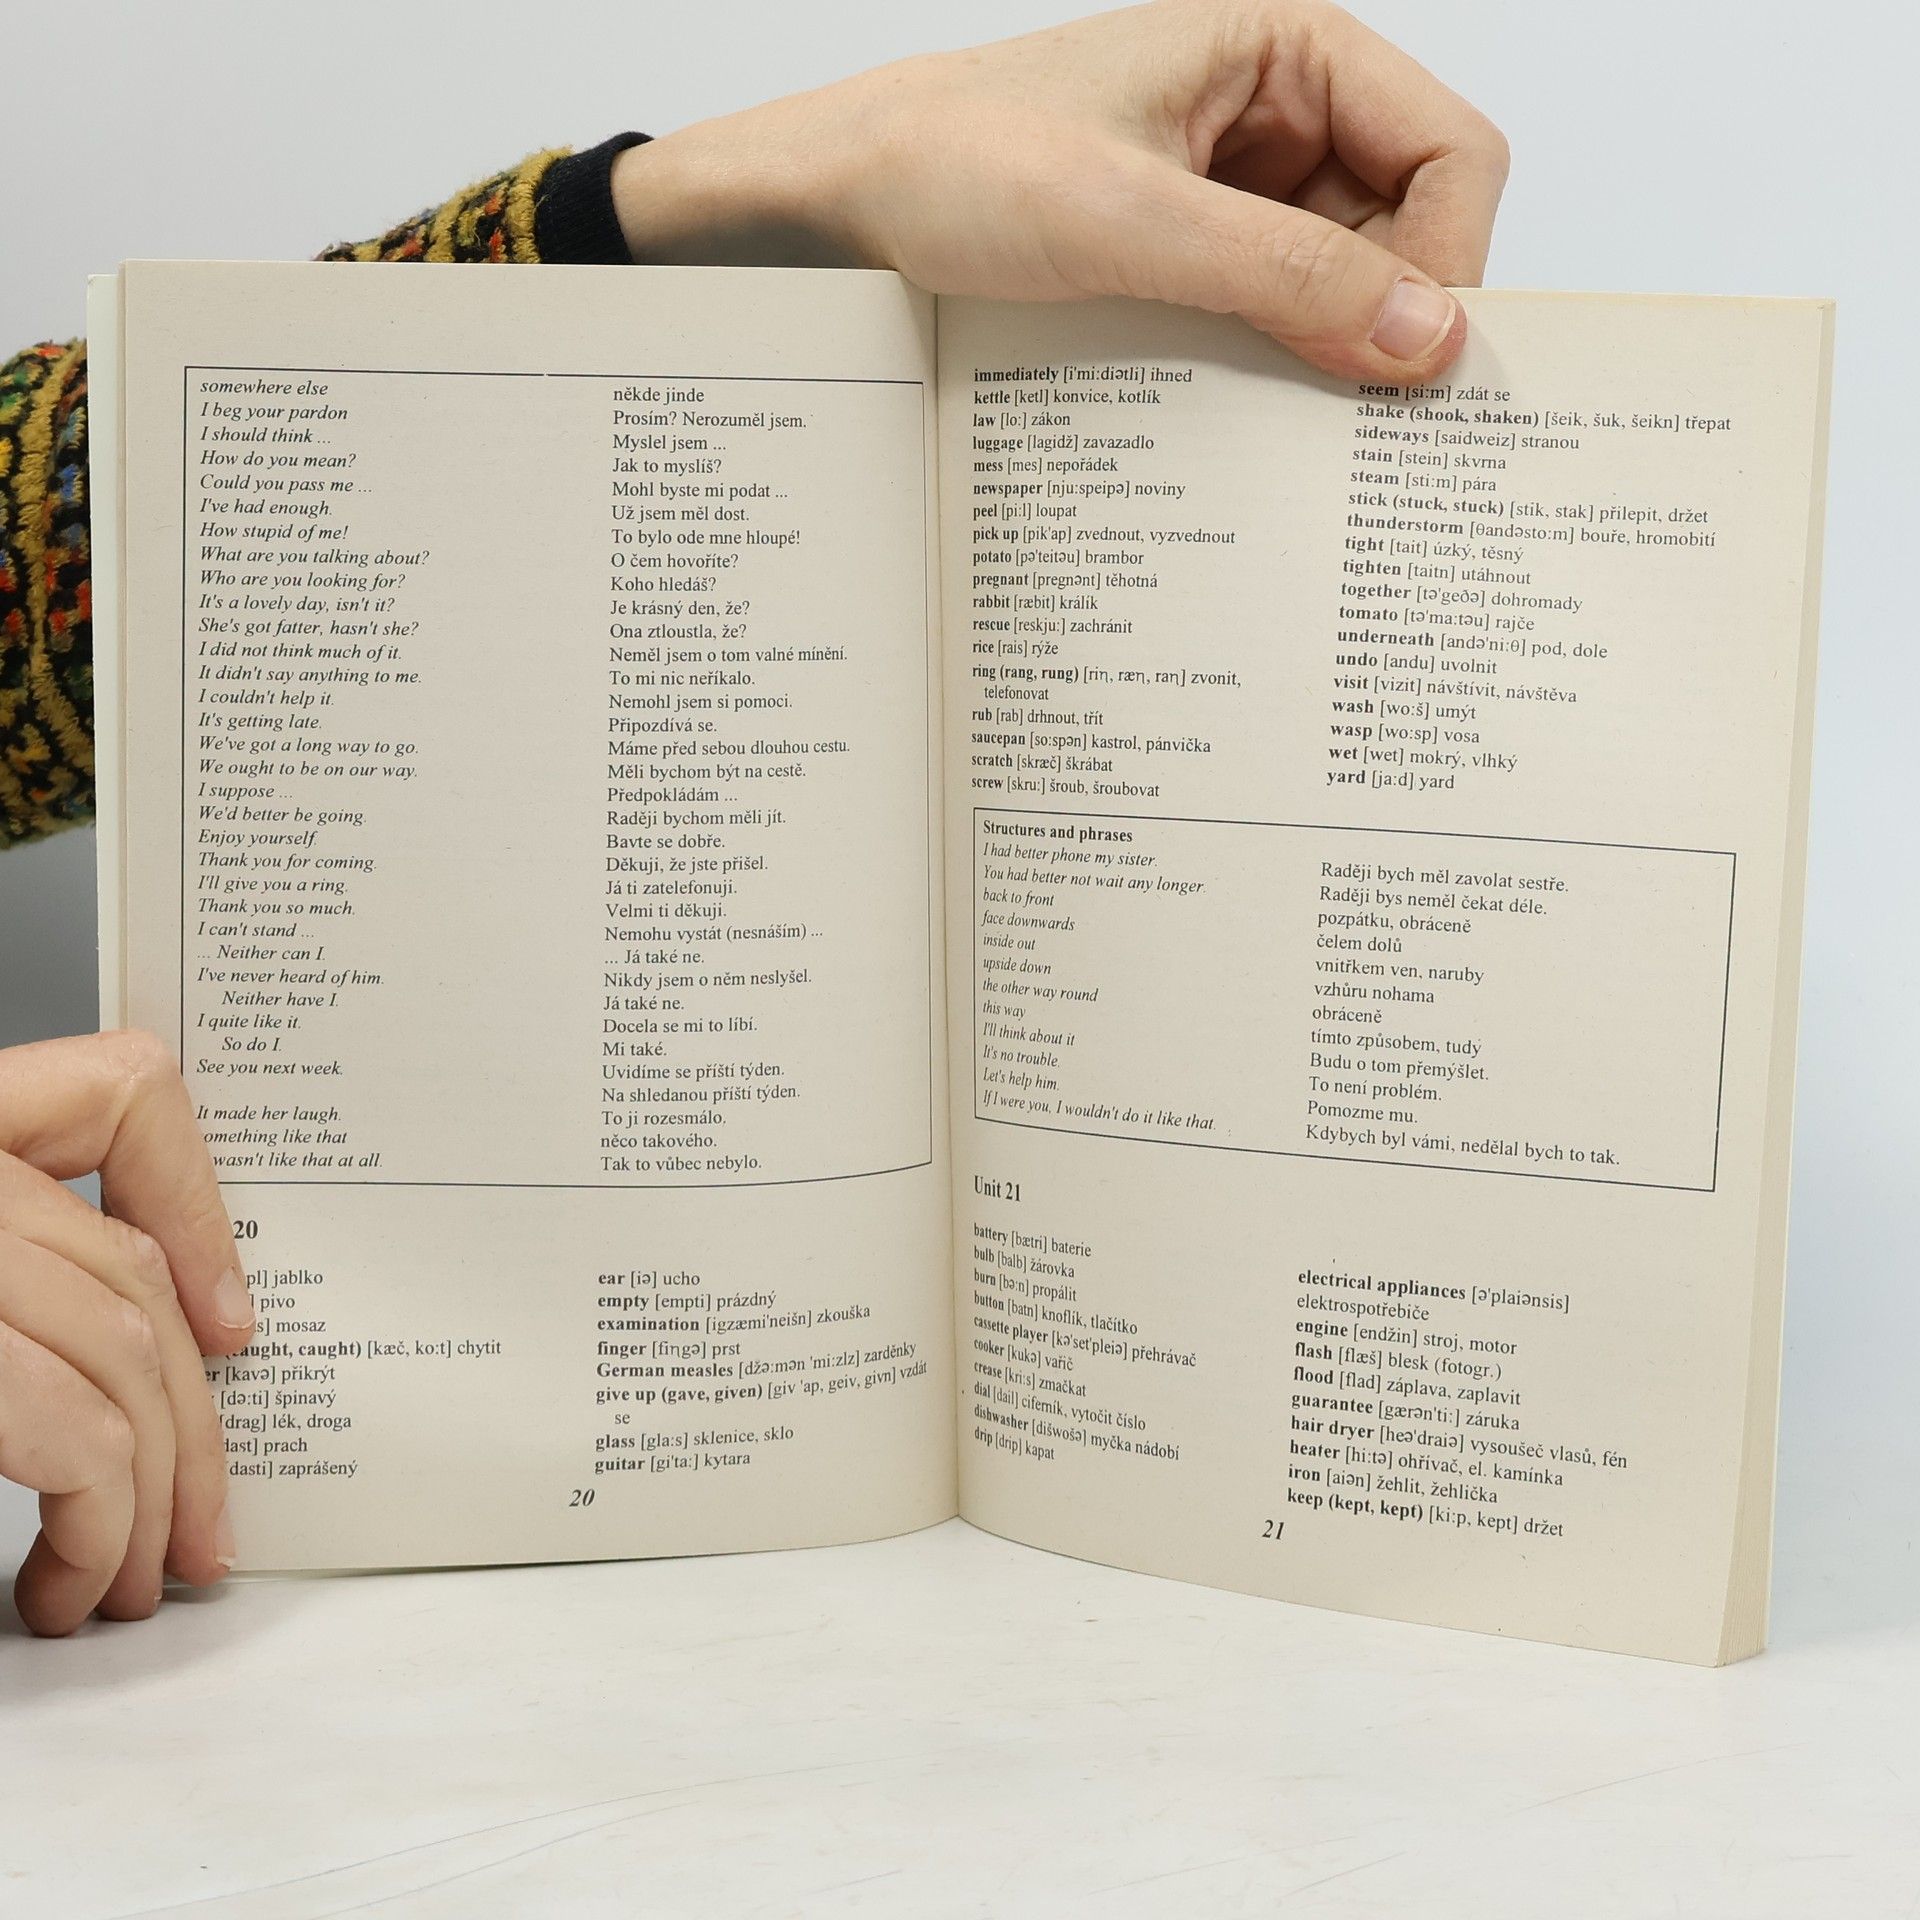 somewhere else někde jinde
I beg your pardon Prosím? Nerozuměl jsem.
I should think ... Myslel jsem ...
How do you mean? Jak to myslíš?
Could you pass me ... Mohl byste mi podat ...
I've had enough. Už jsem měl dost.
How stupid of me! To bylo ode mne hloupé!
What are you talking about? O čem hovoříte?
Who are you looking for? Koho hledáš?
It's a lovely day, isn't it? Je krásný den, že?
She's got fatter, hasn't she? Ona ztloustla, že?
I did not think much of it. Neměl jsem o tom valné mínění.
It didn't say anything to me. To mi nic neříkalo.
I couldn't help it. Nemohl jsem si pomoci.
It's getting late. Připozdívá se.
We've got a long way to go. Máme před sebou dlouhou cestu.
We ought to be on our way. Měli bychom být na cestě.
I suppose ... Předpokládám ...
We'd better be going. Raději bychom měli jít.
Enjoy yourself. Bavte se dobře.
Thank you for coming. Děkuji, že jste přišel.
I'll give you a ring. Já ti zatelefonuji.
Thank you so much. Velmi ti děkuji.
I can't stand ... Nemohu vystát (nesnáším) ...
... Neither can I. ... Já také ne.
I've never heard of him. Nikdy jsem o něm neslyšel.
Neither have I. Já také ne.
I quite like it. Docela se mi to líbí.
So do I. Mi také.
See you next week. Uvidíme se příští týden.
Na shledanou příští týden.
It made her laugh. To ji rozesmálo.
omething like that něco takového.
wasn't like that at all. Tak to vůbec nebylo.
20
pl] jablko
] pivo
s] mosaz
caught, caught) [kæč, ko:t] chytit
er [kavə] přikrýt
[də:ti] špinavý
[drag] lék, droga
dast] prach
dasti] zaprášený
ear [iə] ucho
empty [empti] prázdný
examination [igzæmi'neišn] zkouška
finger [fiŋgə] prst
German measles [džə:mən 'mi:zlz] zarděnky
give up (gave, given) [giv 'ap, geiv, givn] vzdát
se
glass [gla:s] sklenice, sklo
guitar [gi'ta:] kytara
20
immediately [i'mi:diətli] ihned
kettle [ketl] konvice, kotlík
law [lo:] zákon
luggage [lagidž] zavazadlo
mess [mes] nepořádek
newspaper [nju:speipə] noviny
peel [pi:l] loupat
pick up [pik'ap] zvednout, vyzvednout
potato [pə'teitəu] brambor
pregnant [pregnənt] těhotná
rabbit [ræbit] králík
rescue [reskju:] zachránit
rice [rais] rýže
ring (rang, rung) [riŋ, ræŋ, raŋ] zvonit,
telefonovat
rub [rab] drhnout, třít
saucepan [so:spən] kastrol, pánvička
scratch [skræč] škrábat
screw [skru:] šroub, šroubovat
seem [si:m] zdát se
shake (shook, shaken) [šeik, šuk, šeikn] třepat
sideways [saidweiz] stranou
stain [stein] skvrna
steam [sti:m] pára
stick (stuck, stuck) [stik, stak] přilepit, držet
thunderstorm [θandəsto:m] bouře, hromobití
tight [tait] úzký, těsný
tighten [taitn] utáhnout
together [tə'geðə] dohromady
tomato [tə'ma:təu] rajče
underneath [andə'ni:θ] pod, dole
undo [andu] uvolnit
visit [vizit] návštívit, návštěva
wash [wo:š] umýt
wasp [wo:sp] vosa
wet [wet] mokrý, vlhký
yard [ja:d] yard
Structures and phrases
I had better phone my sister. Raději bych měl zavolat sestře.
You had better not wait any longer. Raději bys neměl čekat déle.
back to front pozpátku, obráceně
face downwards čelem dolů
inside out vnitřkem ven, naruby
upside down vzhůru nohama
the other way round obráceně
this way tímto způsobem, tudy
I'll think about it Budu o tom přemýšlet.
It's no trouble. To není problém.
Let's help him. Pomozme mu.
If I were you, I wouldn't do it like that. Kdybych byl vámi, nedělal bych to tak.
Unit 21
battery [bætri] baterie
bulb [balb] žárovka
burn [bə:n] propálit
button [batn] knoflík, tlačítko
cassette player [kə'set'pleiə] přehrávač
cooker [kukə] vařič
crease [kri:s] zmačkat
dial [dail] ciferník, vytočit číslo
dishwasher [dišwošə] myčka nádobí
drip [drip] kapat
electrical appliances [ə'plaiənsis]
elektrospotřebiče
engine [endžin] stroj, motor
flash [flæš] blesk (fotogr.)
flood [flad] záplava, zaplavit
guarantee [gærən'ti:] záruka
hair dryer [heə'draiə] vysoušeč vlasů, fén
heater [hi:tə] ohřívač, el. kamínka
iron [aiən] žehlit, žehlička
keep (kept, kept) [ki:p, kept] držet
21